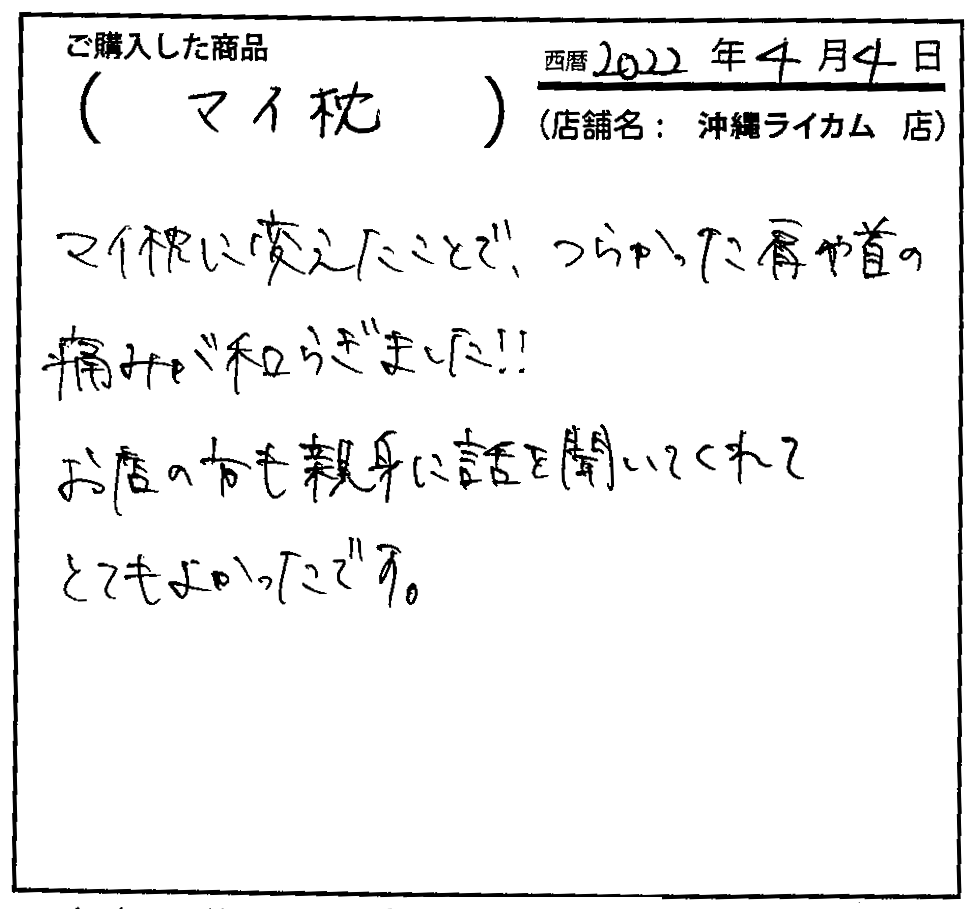 ご購入した商品
(マイ枕)
西暦2022年4月4日
(店舗名: 沖縄ライカム 店)
マイ枕に変えたことで、つらかった肩や首の
痛みが和らぎました!!
お店の方も親身に話を聞いてくれて
とてもよかったです。